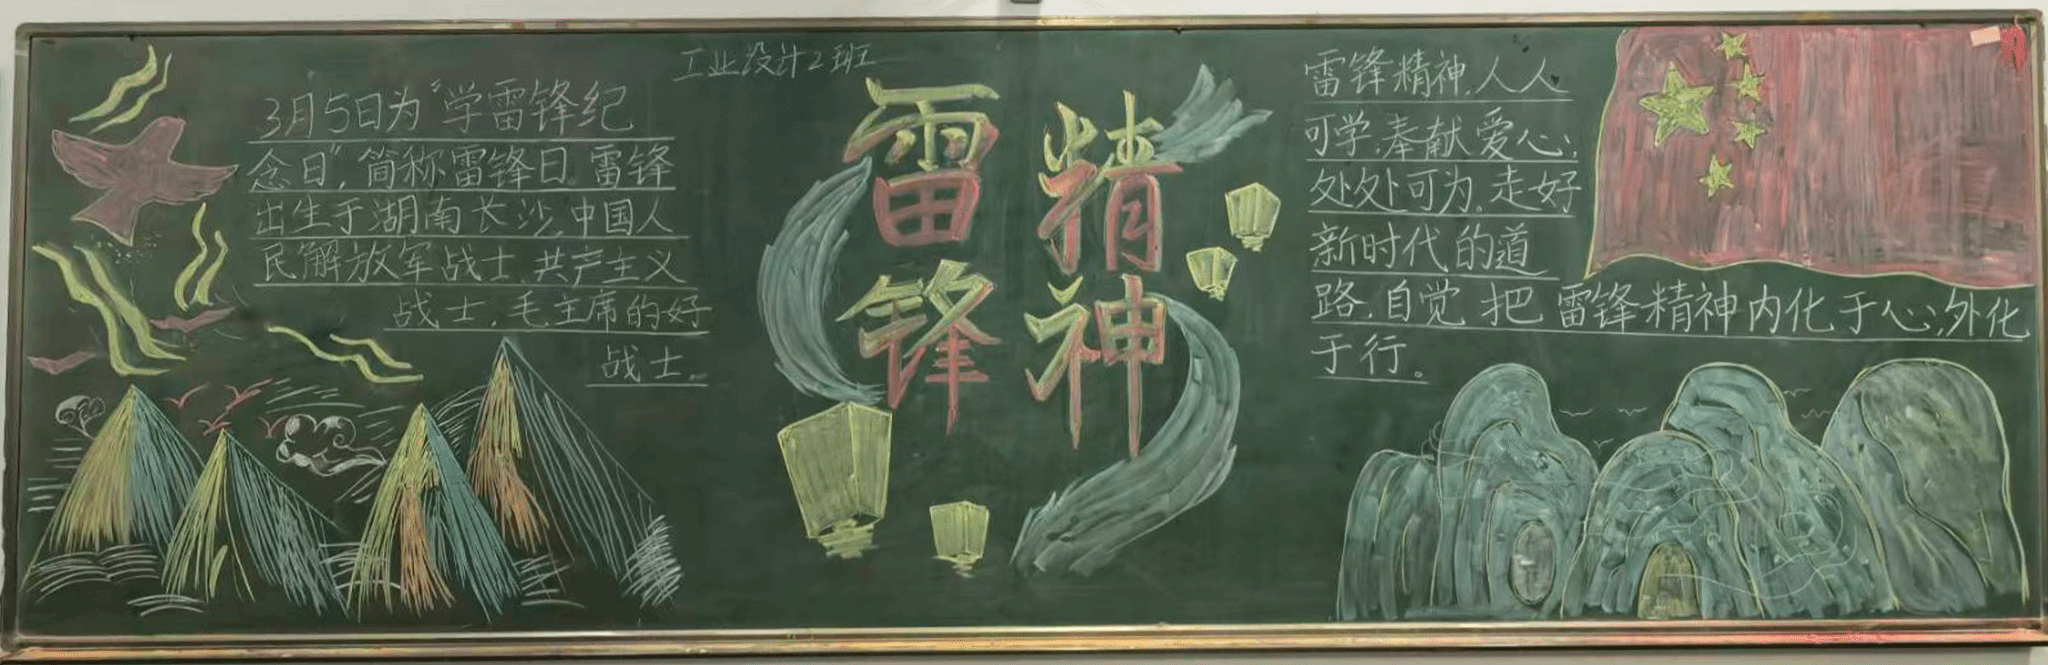 工业设计2班
3月5日为“学雷锋纪
念日”，简称雷锋日。雷锋
出生于湖南长沙，中国人
民解放军战士，共产主义
战士，毛主席的好
战士。
雷锋
精神
雷锋精神，人人
可学，奉献爱心，
处处可为。走好
新时代的道
路，自觉把雷锋精神内化于心，外化
于行。